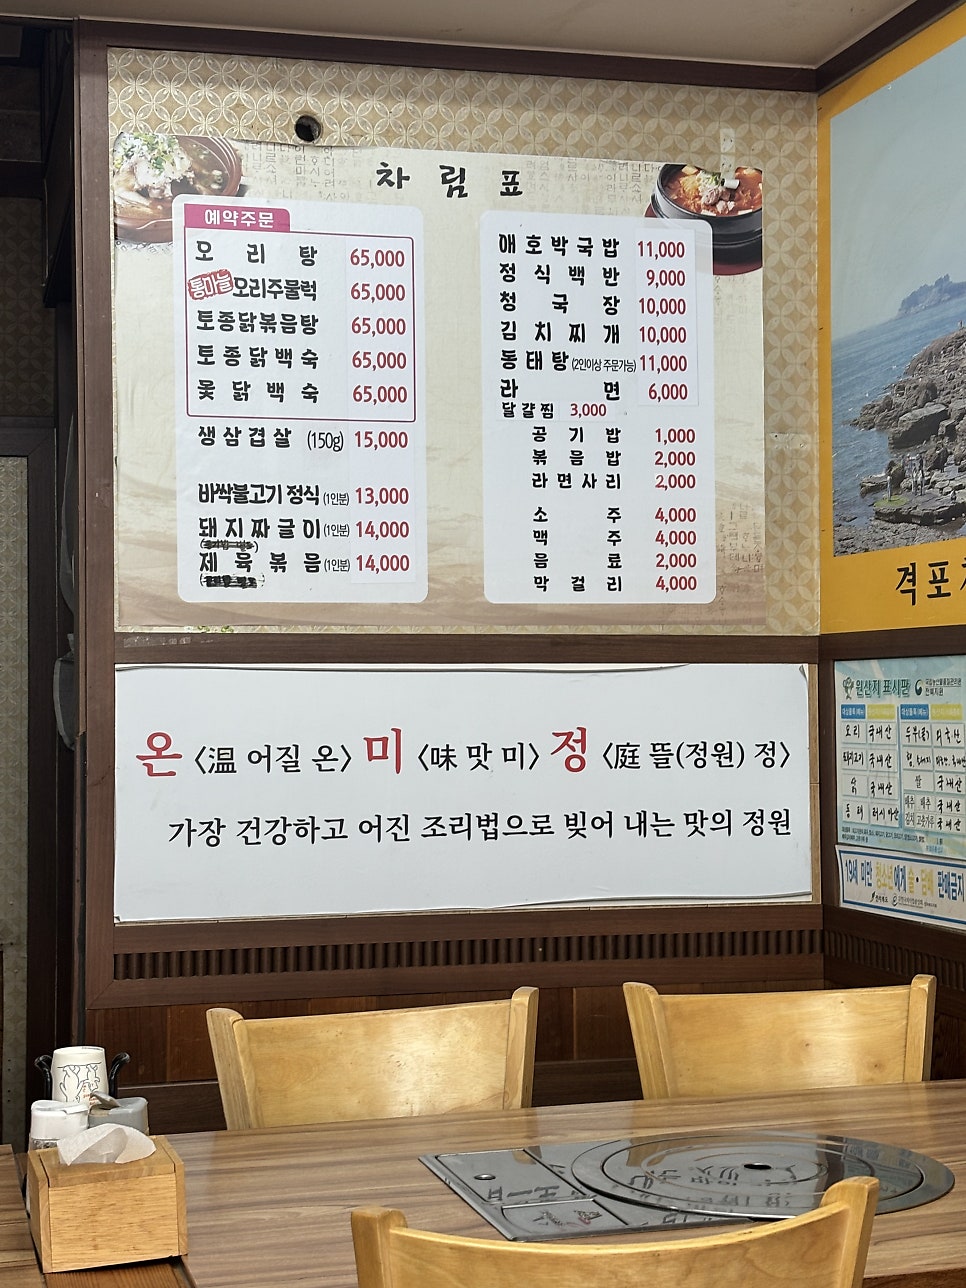 차림표
예약주문
오리탕 65,000
통마늘 오리주물럭 65,000
토종닭볶음탕 65,000
토종닭백숙 65,000
옻닭백숙 65,000
생삼겹살 (150g) 15,000
바싹불고기 정식 (1인분) 13,000
돼지짜글이 (1인분) 14,000
제육볶음 (1인분) 14,000
애호박국밥 11,000
정식백반 9,000
청국장 10,000
김치찌개 10,000
동태탕 (2인이상 주문가능) 11,000
라면 6,000
달걀찜 3,000
공기밥 1,000
볶음밥 2,000
라면사리 2,000
소주 4,000
맥주 4,000
음료 2,000
막걸리 4,000
온 〈温 어질 온〉 미 〈味 맛 미〉 정 〈庭 뜰(정원) 정〉
가장 건강하고 어진 조리법으로 빚어 내는 맛의 정원
격포
원산지 표시판
오리 국내산
돼지고기 국내산
닭 국내산
동태 러시아산
두부(콩) 외국산
쌀 국내산
배추 배추 국내산
김치 고춧가루 국내산
19세 미만 청소년에게 술·담배 판매금지